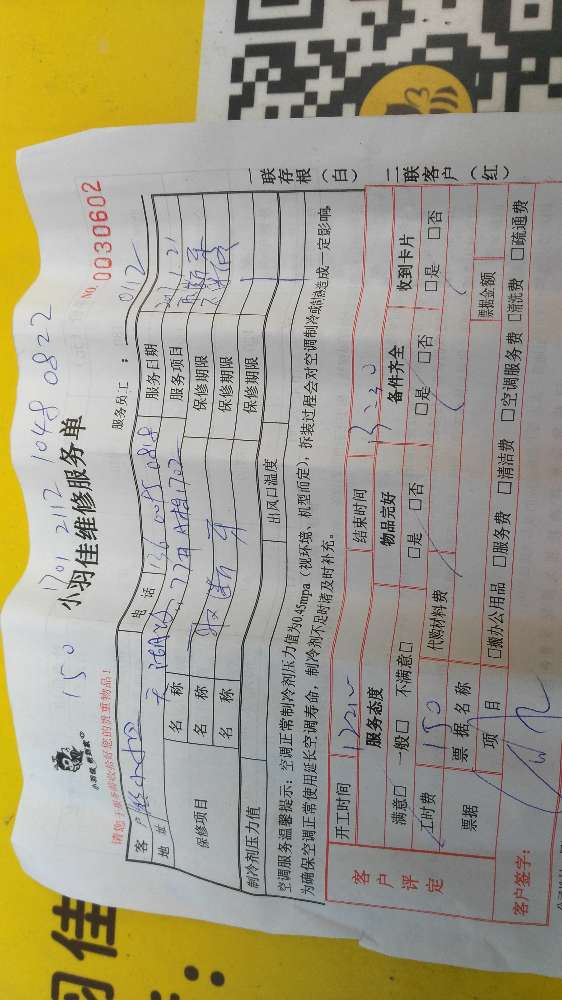 150 1701 2112 1048 0822
小羽佳维修服务单
NO. 0030602
小羽佳 帮到家
请您于服务前收拾好您的贵重物品!
服务员工: 0112
客户 电话 136 0085 0828 服务日期 21
地址 服务项目
保修项目 名称 保修期限
名称 保修期限
名称 保修期限
制冷剂压力值 出风口温度
空调服务温馨提示:空调正常制冷剂压力值为0.45mpa(视环境、机型而定),拆装过程会对空调制冷或制热造成一定影响,
为确保空调正常使用延长空调寿命,制冷剂不足时请及时补充。
一联存根(白)
二联客户(红)
客户评定
开工时间 结束时间 13:30
服务态度 物品完好 备件齐全 收到卡片
满意□ 一般□ 不满意□ □是 □否 □是 □否 □是 □否
工时费 150 代购材料费
票据 票据名称 票据金额
项目 □搬办公用品 □服务费 □清洁费 □空调服务费 □清洗费 □疏通费
客户签字:
羽佳